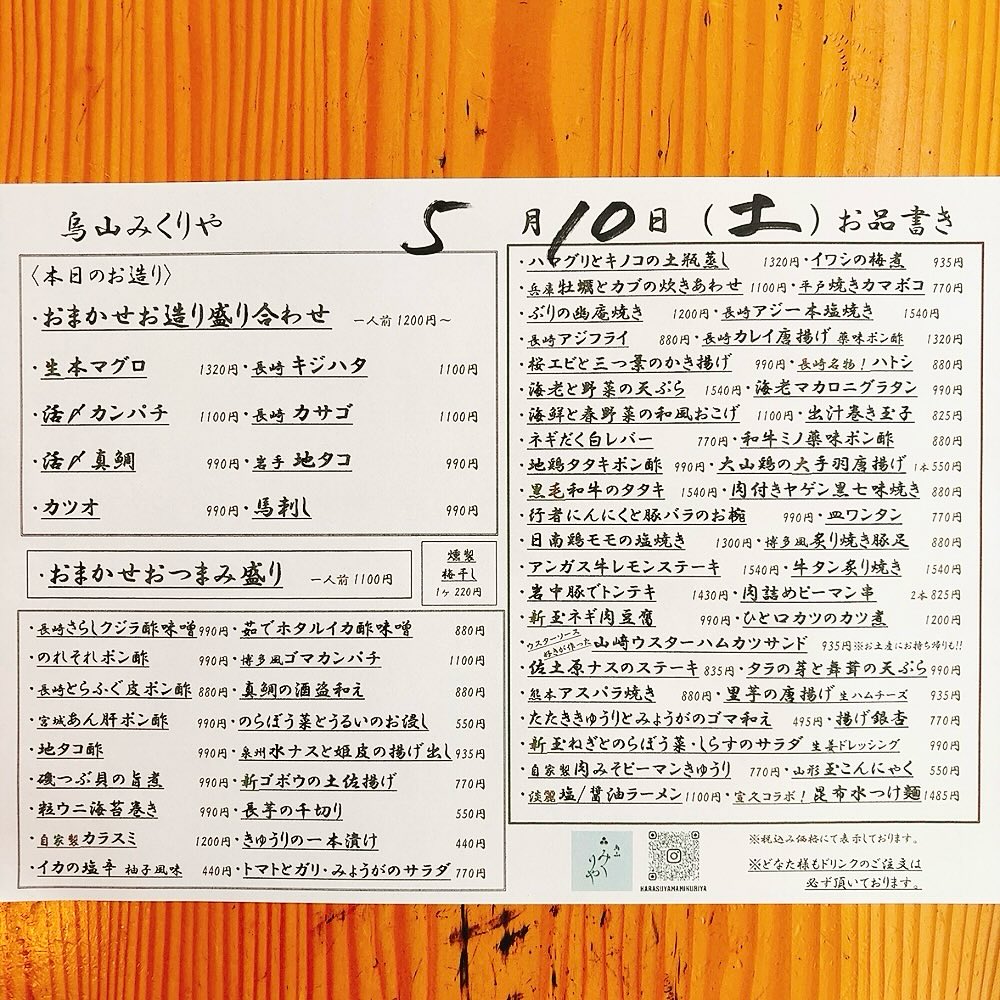 烏山みくりや 5月10日(土)お品書き
〈本日のお造り〉
・おまかせお造り盛り合わせ 一人前1200円〜
・生本マグロ 1320円・長崎キジハタ 1100円
・活〆カンパチ 1100円・長崎カサゴ 1100円
・活〆真鯛 990円・岩手地タコ 990円
・カツオ 990円・馬刺し 990円
・おまかせおつまみ盛り 一人前1100円
燻製
梅干し
1ヶ220円
・長崎さらしクジラ酢味噌990円・茹でホタルイカ酢味噌 880円
・のれそれポン酢 990円・博多風ゴマカンパチ 1100円
・長崎とらふぐ皮ポン酢 880円・真鯛の酒盗和え 880円
・宮城あん肝ポン酢 990円・のらぼう菜とうるいのお浸し 550円
・地タコ酢 990円・泉州水ナスと姫皮の揚げ出し 935円
・磯つぶ貝の旨煮 990円・新ゴボウの土佐揚げ 770円
・粒ウニ海苔巻き 990円・長芋の千切り 550円
・自家製カラスミ 1200円・きゅうりの一本漬け 440円
・イカの塩辛 柚子風味 440円・トマトとガリ・みょうがのサラダ 770円
・ハマグリとキノコの土瓶蒸し 1320円・イワシの梅煮 935円
・兵庫牡蠣とカブの炊きあわせ 1100円・平戸焼きカマボコ 770円
・ぶりの幽庵焼き 1200円・長崎アジ一本塩焼き 1540円
・長崎アジフライ 880円・長崎カレイ唐揚げ 薬味ポン酢 1320円
・桜エビと三つ葉のかき揚げ 990円・長崎名物!ハトシ 880円
・海老と野菜の天ぷら 1540円・海老マカロニグラタン 990円
・海鮮と春野菜の和風おこげ 1100円・出汁巻き玉子 825円
・ネギだく白レバー 770円・和牛ミノ薬味ポン酢 880円
・地鶏タタキポン酢 990円・大山鶏の大手羽唐揚げ 1本550円
・黒毛和牛のタタキ 1540円・肉付きヤゲン黒七味焼き 880円
・行者にんにくと豚バラのお椀 990円・皿ワンタン 770円
・日南鶏モモの塩焼き 1300円・博多風炙り焼き豚足 880円
・アンガス牛レモンステーキ 1540円・牛タン炙り焼き 1540円
・岩中豚でトンテキ 1430円・肉詰めピーマン串 2本825円
・新玉ネギ肉豆腐 990円・ひと口カツのカツ煮 1200円
・ウスターソース好きが作った 山﨑ウスターハムカツサンド 935円※お土産にお持ち帰りも!!
・佐土原ナスのステーキ 835円・タラの芽と舞茸の天ぷら 990円
・熊本アスパラ焼き 880円・里芋の唐揚げ 生ハムチーズ 935円
・たたききゅうりとみょうがのゴマ和え 495円・揚げ銀杏 770円
・新玉ねぎとのらぼう菜・しらすのサラダ 生姜ドレッシング 990円
・自家製肉みそピーマンきゅうり 770円・山形玉こんにゃく 550円
・淡麗塩/醤油ラーメン1100円・宣久コラボ!昆布水つけ麺1485円
みくりや
HARASUYAMAMIKURIYA
※税込み価格にて表示しております。
※どなた様もドリンクのご注文は
必ず頂いております。